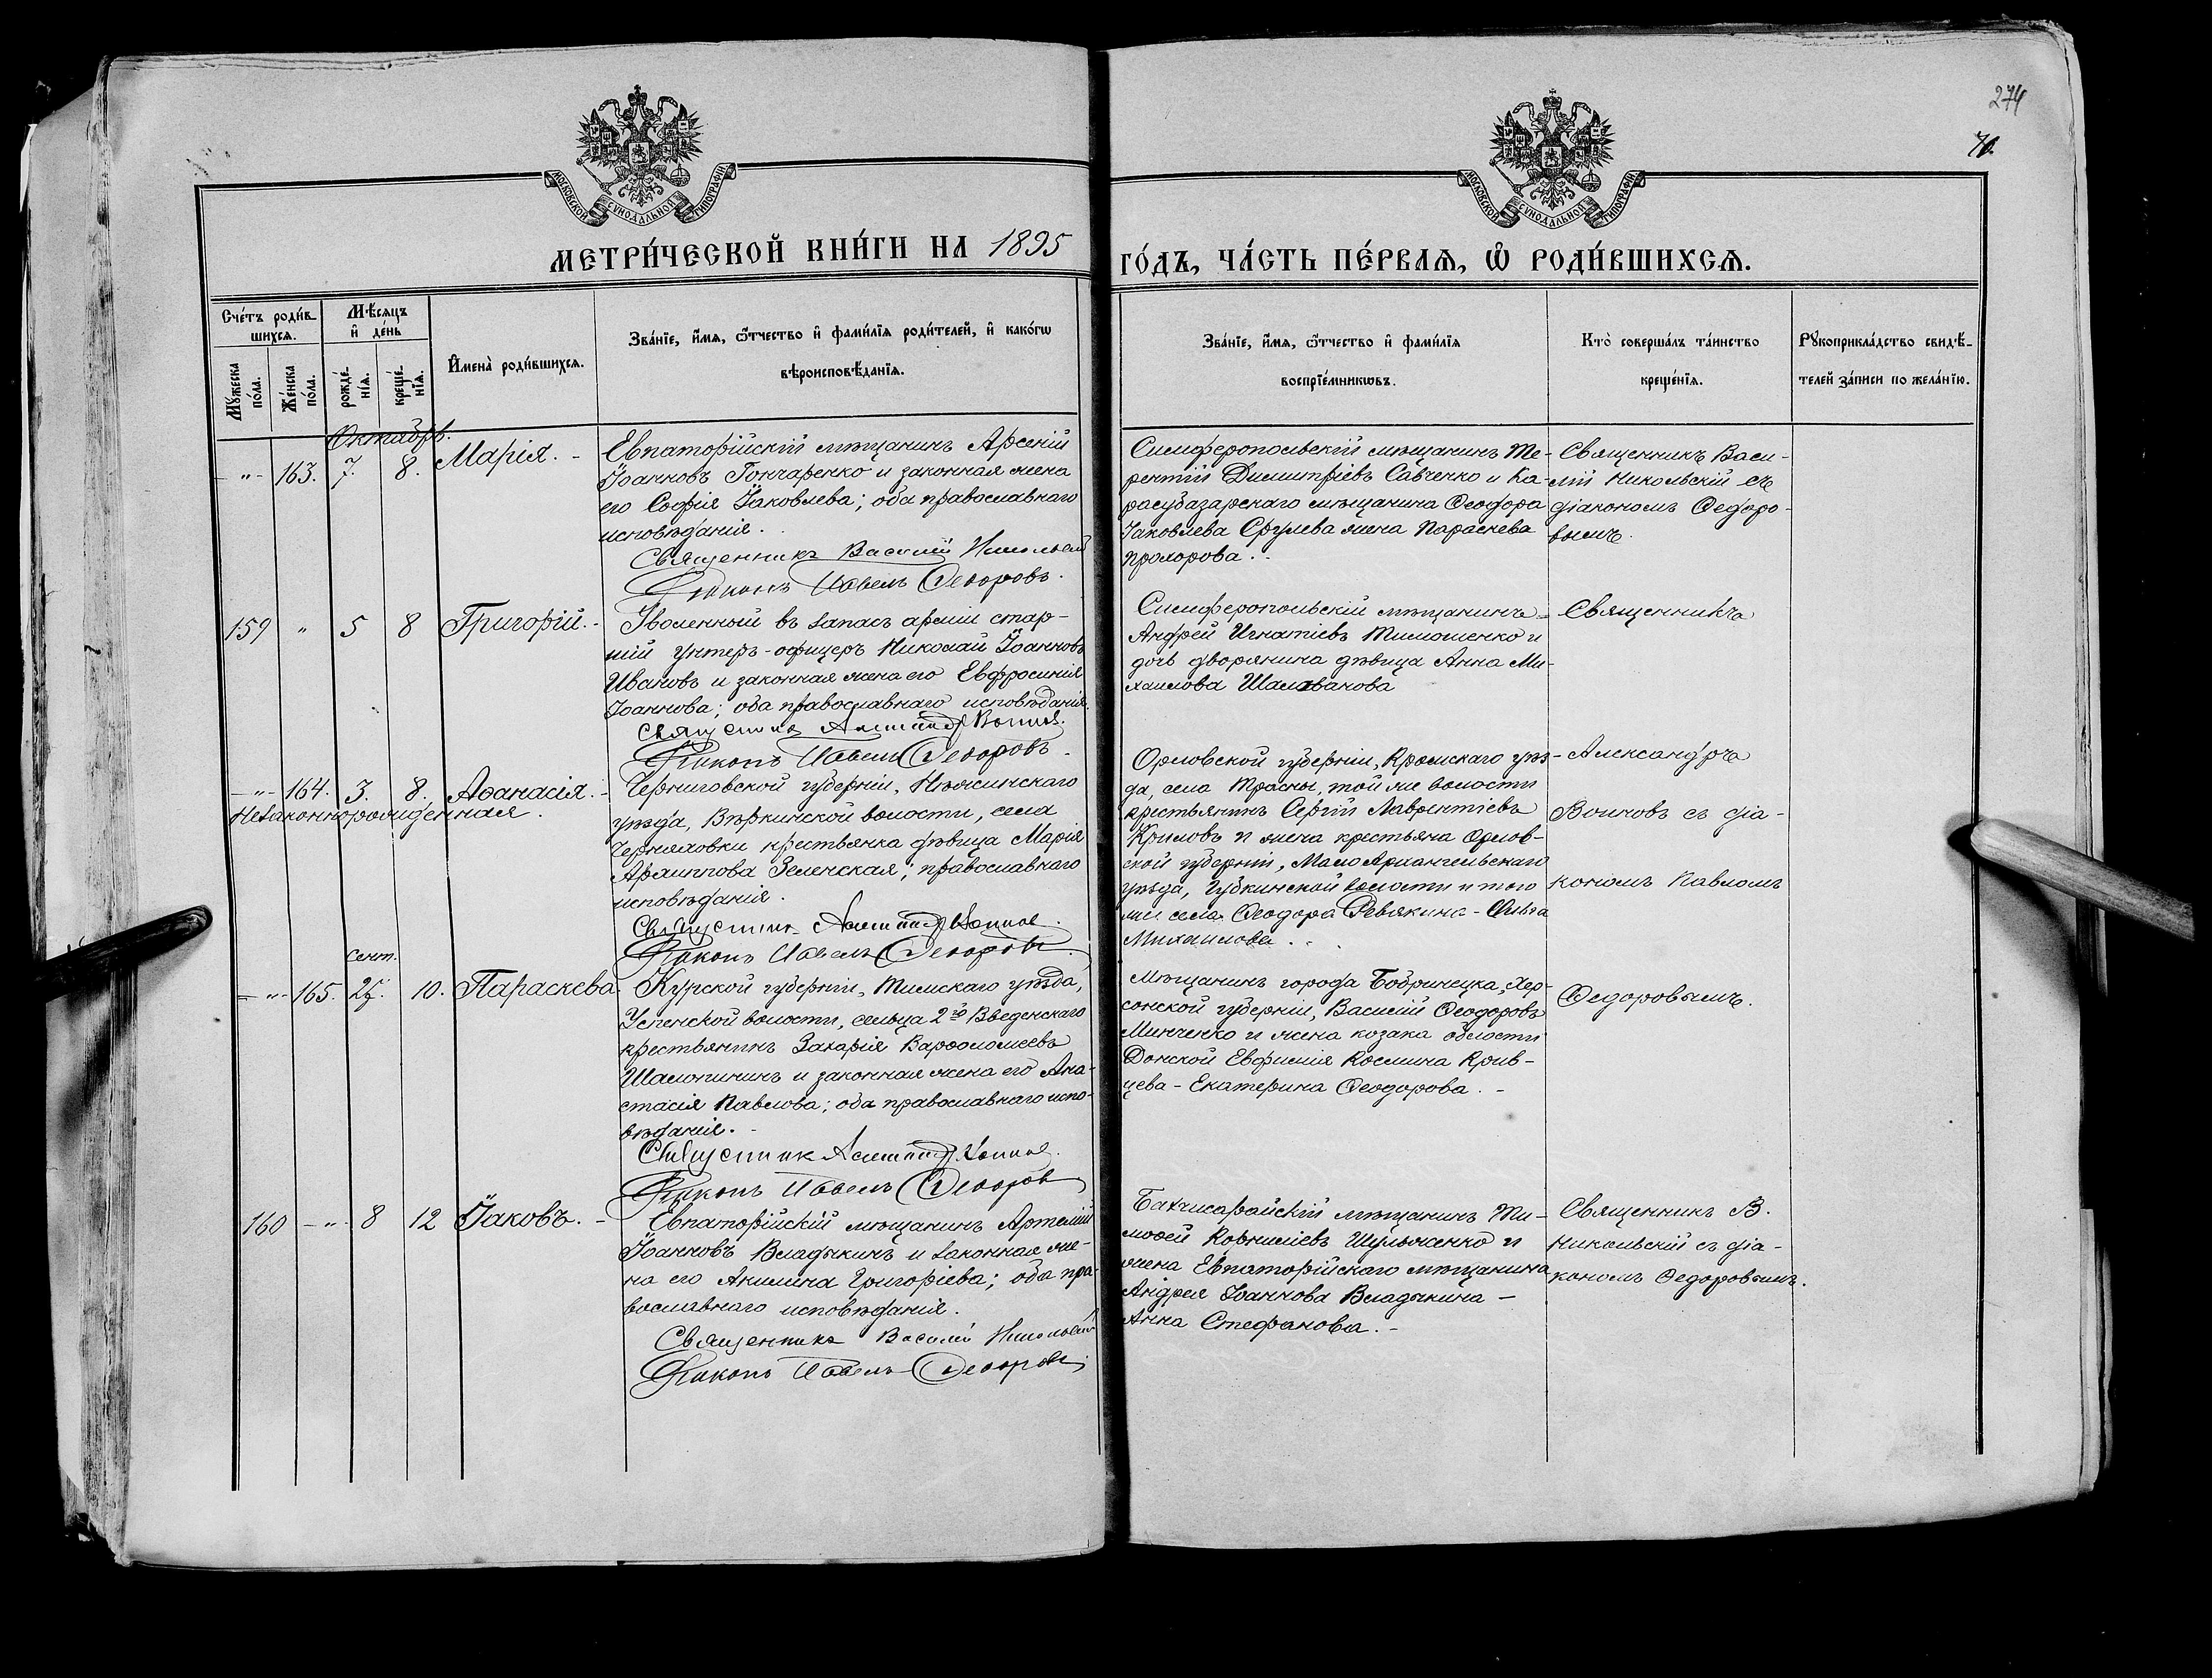 274
70.
МОСКОВСКОЙ СѴНОДАЛЬНОЙ ТИПОГРАФІИ
МОСКОВСКОЙ СѴНОДАЛЬНОЙ ТИПОГРАФІИ
МЕТРИ́ЧЕСКОЙ КНИ́ГИ НА 1895
ГО́ДЪ, ЧА́СТЬ ПЕ́РВАѦ, Ѽ РОДИ́ВШИХСѦ.
Сче́тъ роди́в
шихсѧ.
Мѣ́сѧцъ
и҆ де́нь
Мꙋ́жеска по́ла.
Же́нска по́ла.
рожде́нїѧ.
креще́нїѧ.
И҆мена̀ роди́вшихсѧ.
Зва́нїе, и҆́мѧ, ѻ҆́тчество и҆ фами́лїѧ роди́телей, и҆ како́гѡ
вѣроисповѣ́данїѧ.
Зва́нїе, и҆́мѧ, ѻ҆́тчество и҆ фами́лїѧ
воспрїе́мникѡвъ.
Кто̀ соверша́лъ та́инство
креще́нїѧ.
Рꙋкоприкла́дство свидѣ́-
телей за́писи по жела́нїю.
Октябрь.
-"- 163. 7. 8. Марія. -
Евпаторійскій мѣщанинъ Арсеній
Іоанновъ Гончаренко и законная жена
его Софія Іаковлева; оба православнаго
исповѣданія.
Священникъ Василій Никольскій
Діаконъ Павелъ Ѳедоровъ.
Симферопольскій мѣщанинъ Те-
рентій Димитріевъ Савченко и Ка-
расубазарскаго мѣщанина Ѳеодора
Іаковлева жена Параскева
Прохорова.
Священникъ Васи-
лій Никольскій съ
діакономъ Ѳедоро-
вымъ.
159 " 5 8 Григорій. -
Уволенный въ запасъ арміи стар-
шій унтеръ-офицеръ Николай Іоанновъ
Ивановъ и законная жена его Евфросинія
Іоаннова; оба православнаго исповѣданія.
Священникъ Александръ Воиновъ.
Діаконъ Павелъ Ѳедоровъ.
Симферопольскій мѣщанинъ
Андрей Игнатіевъ Тимошенко и
дочь дворянина дѣвица Анна Ми-
хаилова Шалованова
Священникъ
-"- 164. 3. 8. Аѳанасія. -
Незаконнорожденная.
Черниговской губерніи, Нѣжинскаго
уѣзда, Вѣркинской волости, села
Черняховки крестьянка дѣвица Марія
Архиппова Зеленская; православнаго
исповѣданія.
Священникъ Александръ Воиновъ
Діаконъ Павелъ Ѳедоровъ.
Орловской губерніи, Кромскаго уѣз-
да, села Тросны, той же волости
крестьянинъ Сергій Лаврентіевъ
Крыловъ и жена крестьяна Орлов-
ской губерніи, Мало Архангельскаго
уѣзда, Губкинской волости и того
же села Ѳеодора Ревякина - Ольга
Михаилова.
Александръ
Воиновъ съ діа-
кономъ Павломъ
сент.
-"- 165. 25. 10. Параскева
Курской губерніи, Тимскаго уѣзда,
Успенской волости, сельца 2го Введенскаго
крестьянинъ Захарія Варѳоломеевъ
Шамонинъ и законная жена его Ана-
стасія Павлова; оба православнаго испо-
вѣданія.
Священникъ Александръ Воиновъ.
Діаконъ Павелъ Ѳедоровъ
Мѣщанинъ города Бобринецка, Хер-
сонской губерніи, Василій Ѳеодоровъ
Минченко и жена козака области
Донской Евфимія Космина Крив-
цева - Екатерина Ѳеодорова. -
Ѳедоровымъ.
160 -"- 8 12 Іаковъ. -
Евпаторійскій мѣщанинъ Артемій
Іоанновъ Владыкинъ и законная же-
на его Акилина Григоріева; оба пра-
вославнаго исповѣданія.
Священникъ Василій Никольскій
Діаконъ Павелъ Ѳедоровъ
Бахчисарайскій мѣщанинъ Ти-
моѳей Корниліевъ Шульженко и
жена Евпаторійскаго мѣщанина
Андрея Іоаннова Владыкина -
Анна Стефанова. -
Священникъ В.
Никольскій съ діа-
кономъ Ѳедоровымъ.